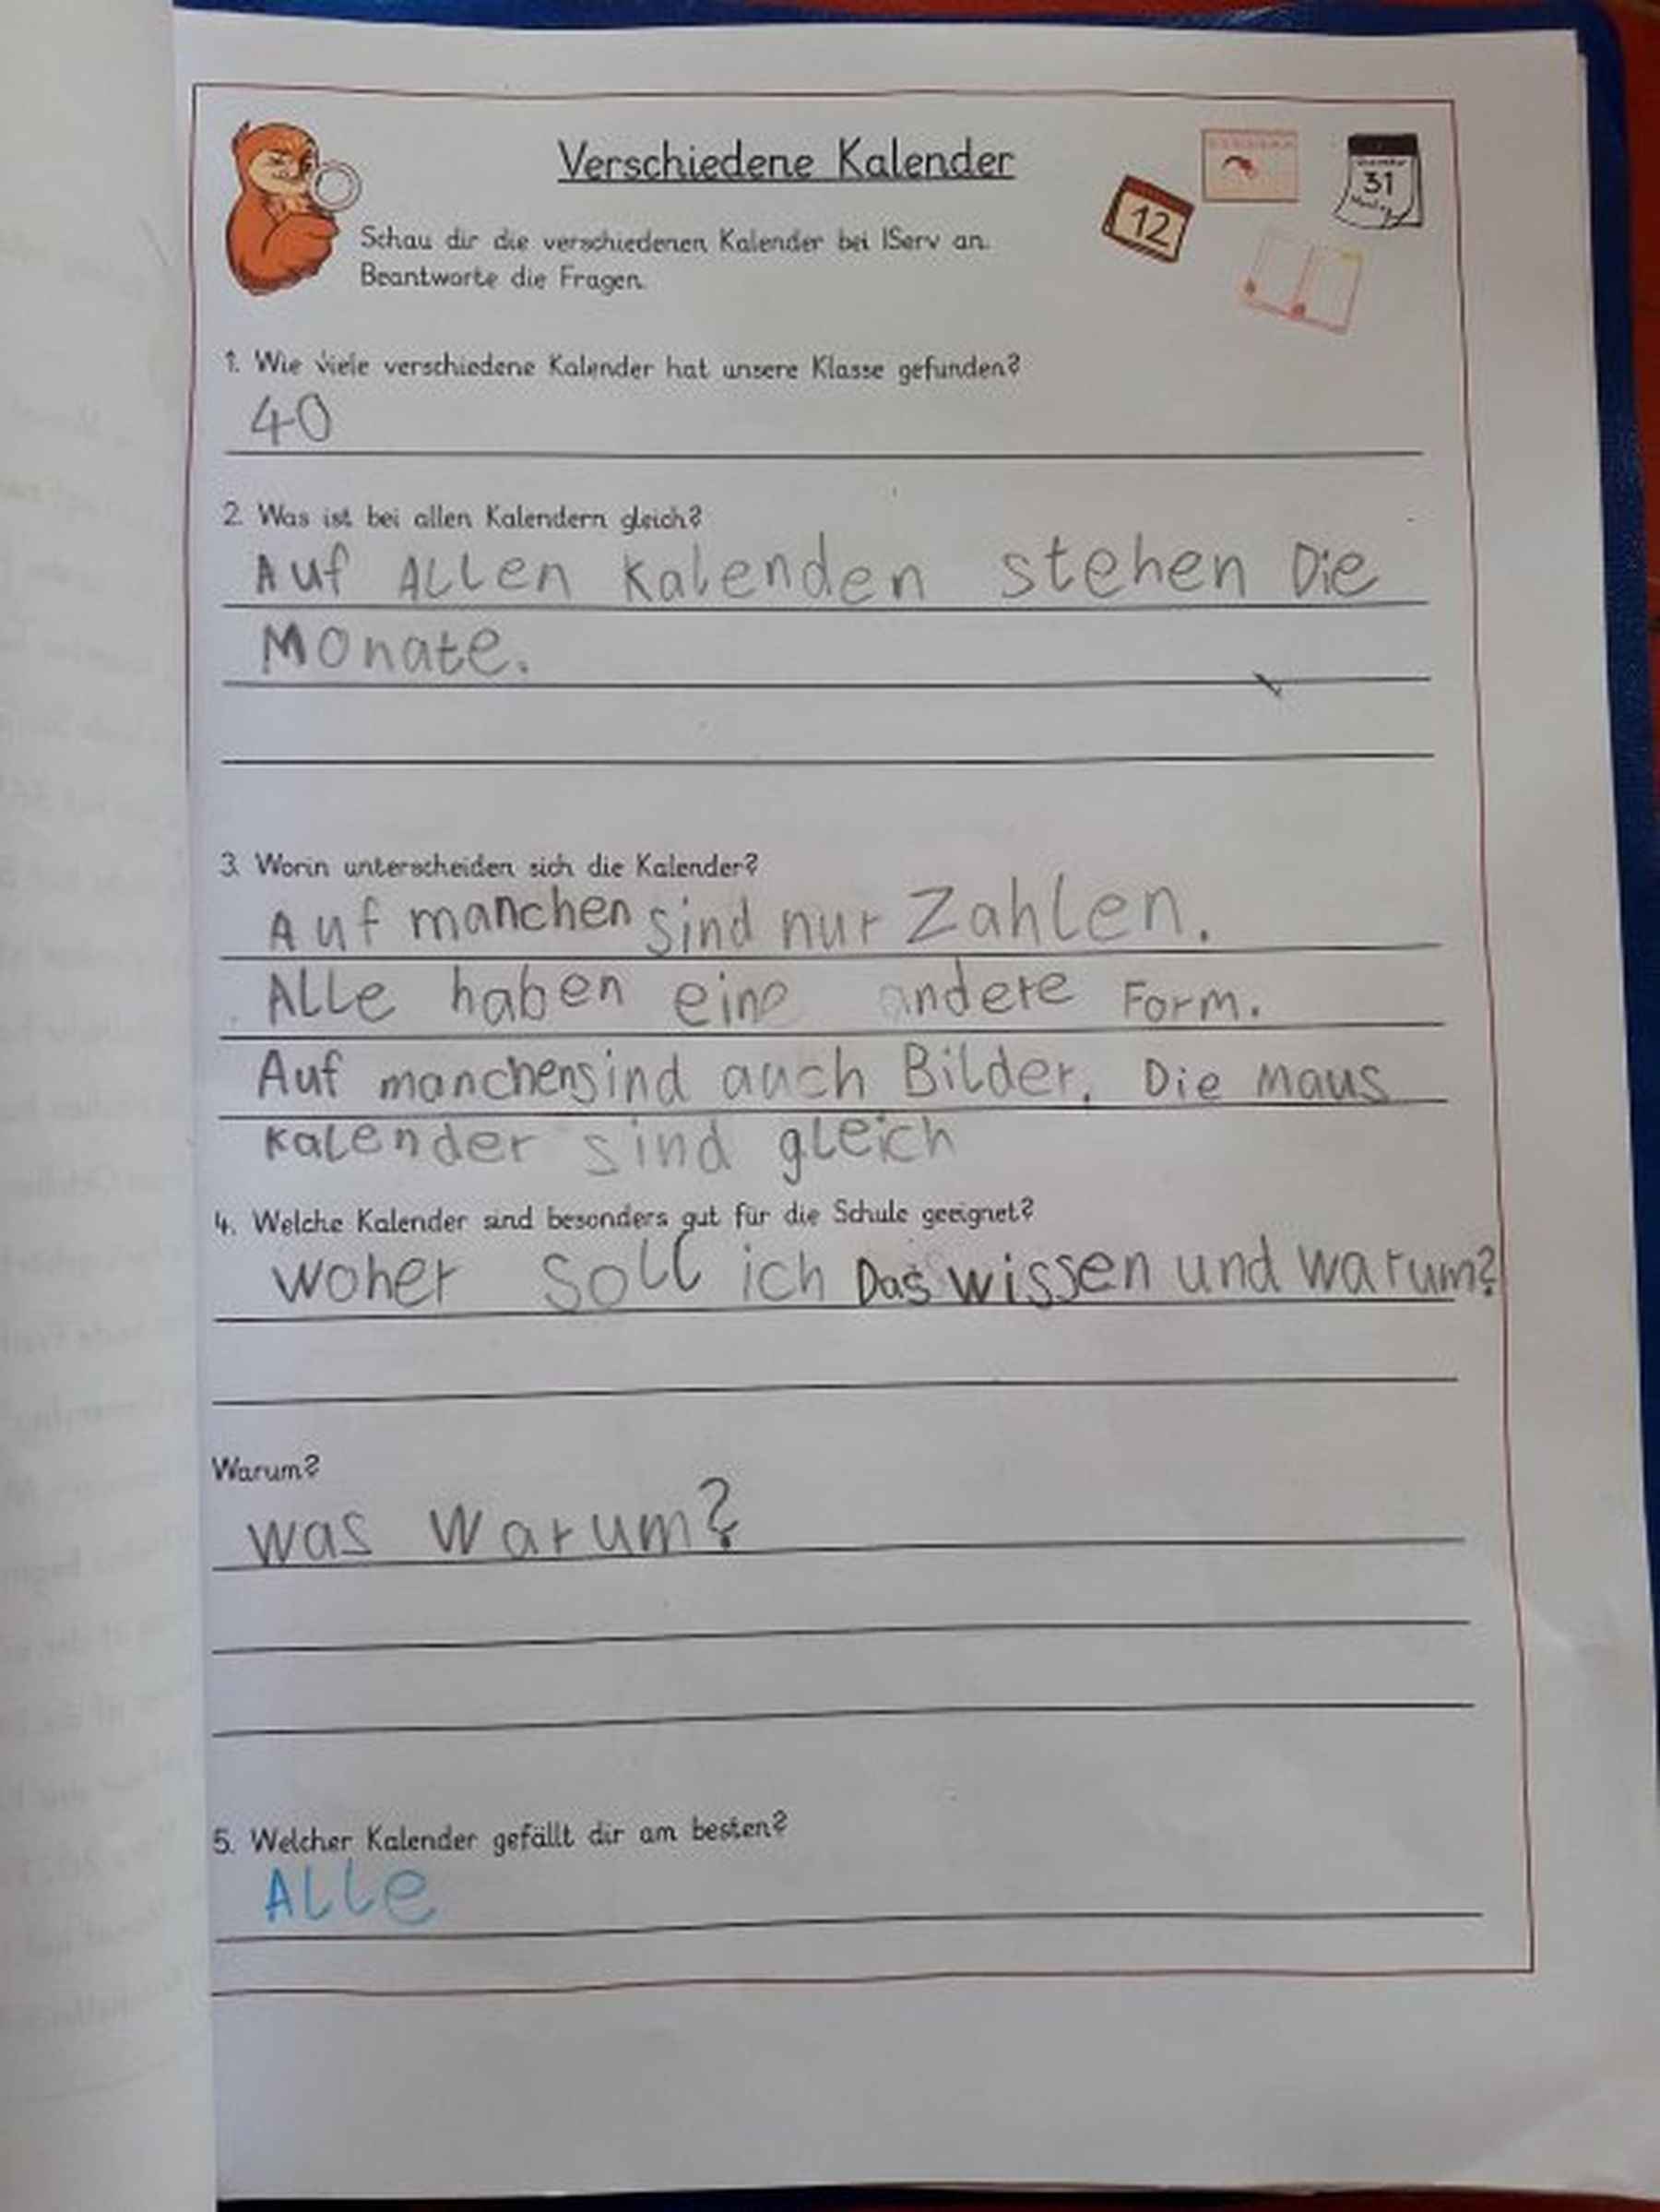 Verschiedene Kalender
12
31
Schau dir die verschiedenen Kalender bei IServ an.
Beantworte die Fragen.
1. Wie viele verschiedene Kalender hat unsere Klasse gefunden?
40
2. Was ist bei allen Kalendern gleich?
Auf ALLen Kalenden stehen Die
Monate.
3. Worin unterscheiden sich die Kalender?
Auf manchen sind nur Zahlen.
ALLe haben eine andere Form.
Auf manchen sind auch Bilder. Die Maus
kalender sind gleich
4. Welche Kalender sind besonders gut für die Schule geeignet?
woher soll ich Das wissen und warum?
Warum?
was warum?
5. Welcher Kalender gefällt dir am besten?
ALLe